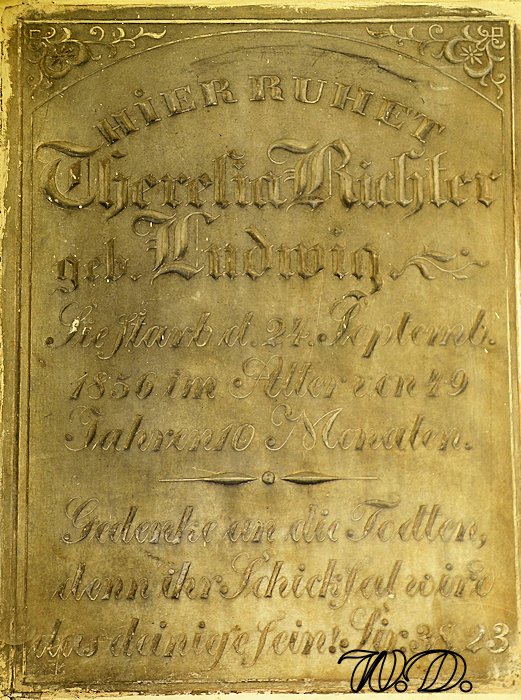 HIER RUHET
Theresia Richter
geb. Ludwig.
Sie starb d. 24. Septemb.
1856 im Alter von 49
Jahren 10 Monaten.
Gedenke an die Todten,
denn ihr Schicksal wird
das deinige sein! Sir: 38 23
W.D.